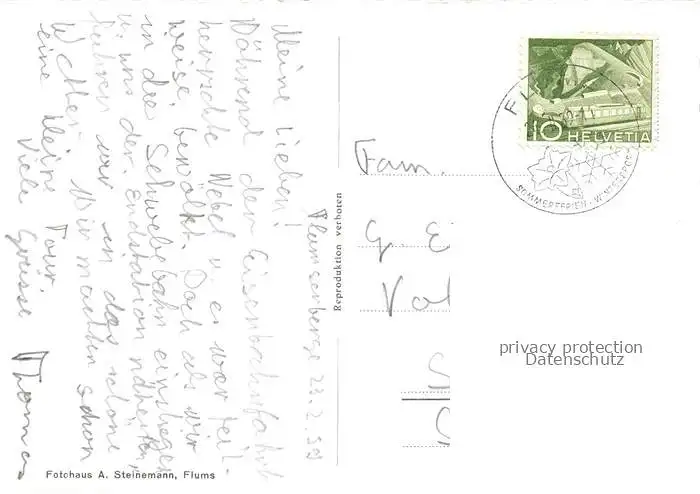 Flumserberge 23.2.59
Meine Lieben!
Während der Eisenbahnfahrt
herrschte Nebel u. es war teil-
weise bewölkt. Doch als wir
in die Schwebebahn einstiegen
u. uns der Endstation näherten,
kamen wir in das schöne
Wetter. Wir machten schon
eine kleine Tour.
Viele Grüsse Thomas
Fotohaus A. Steinemann, Flums
Reproduktion verboten
10 HELVETIA
SOMMERFERIEN - WINTERSPORT
Fam.
G. E
privacy protection
Datenschutz